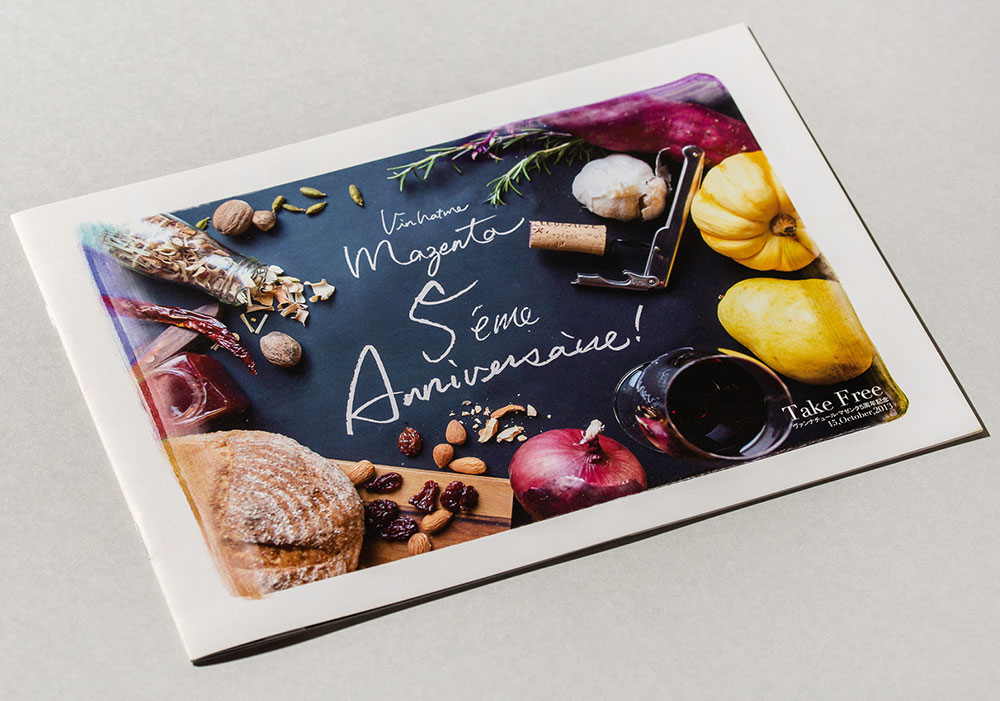 Vin nature
Mazenta
5ème
Anniversaire!
Take Free
ヴァンナチュール・マゼンタ5周年記念
15,October,2013